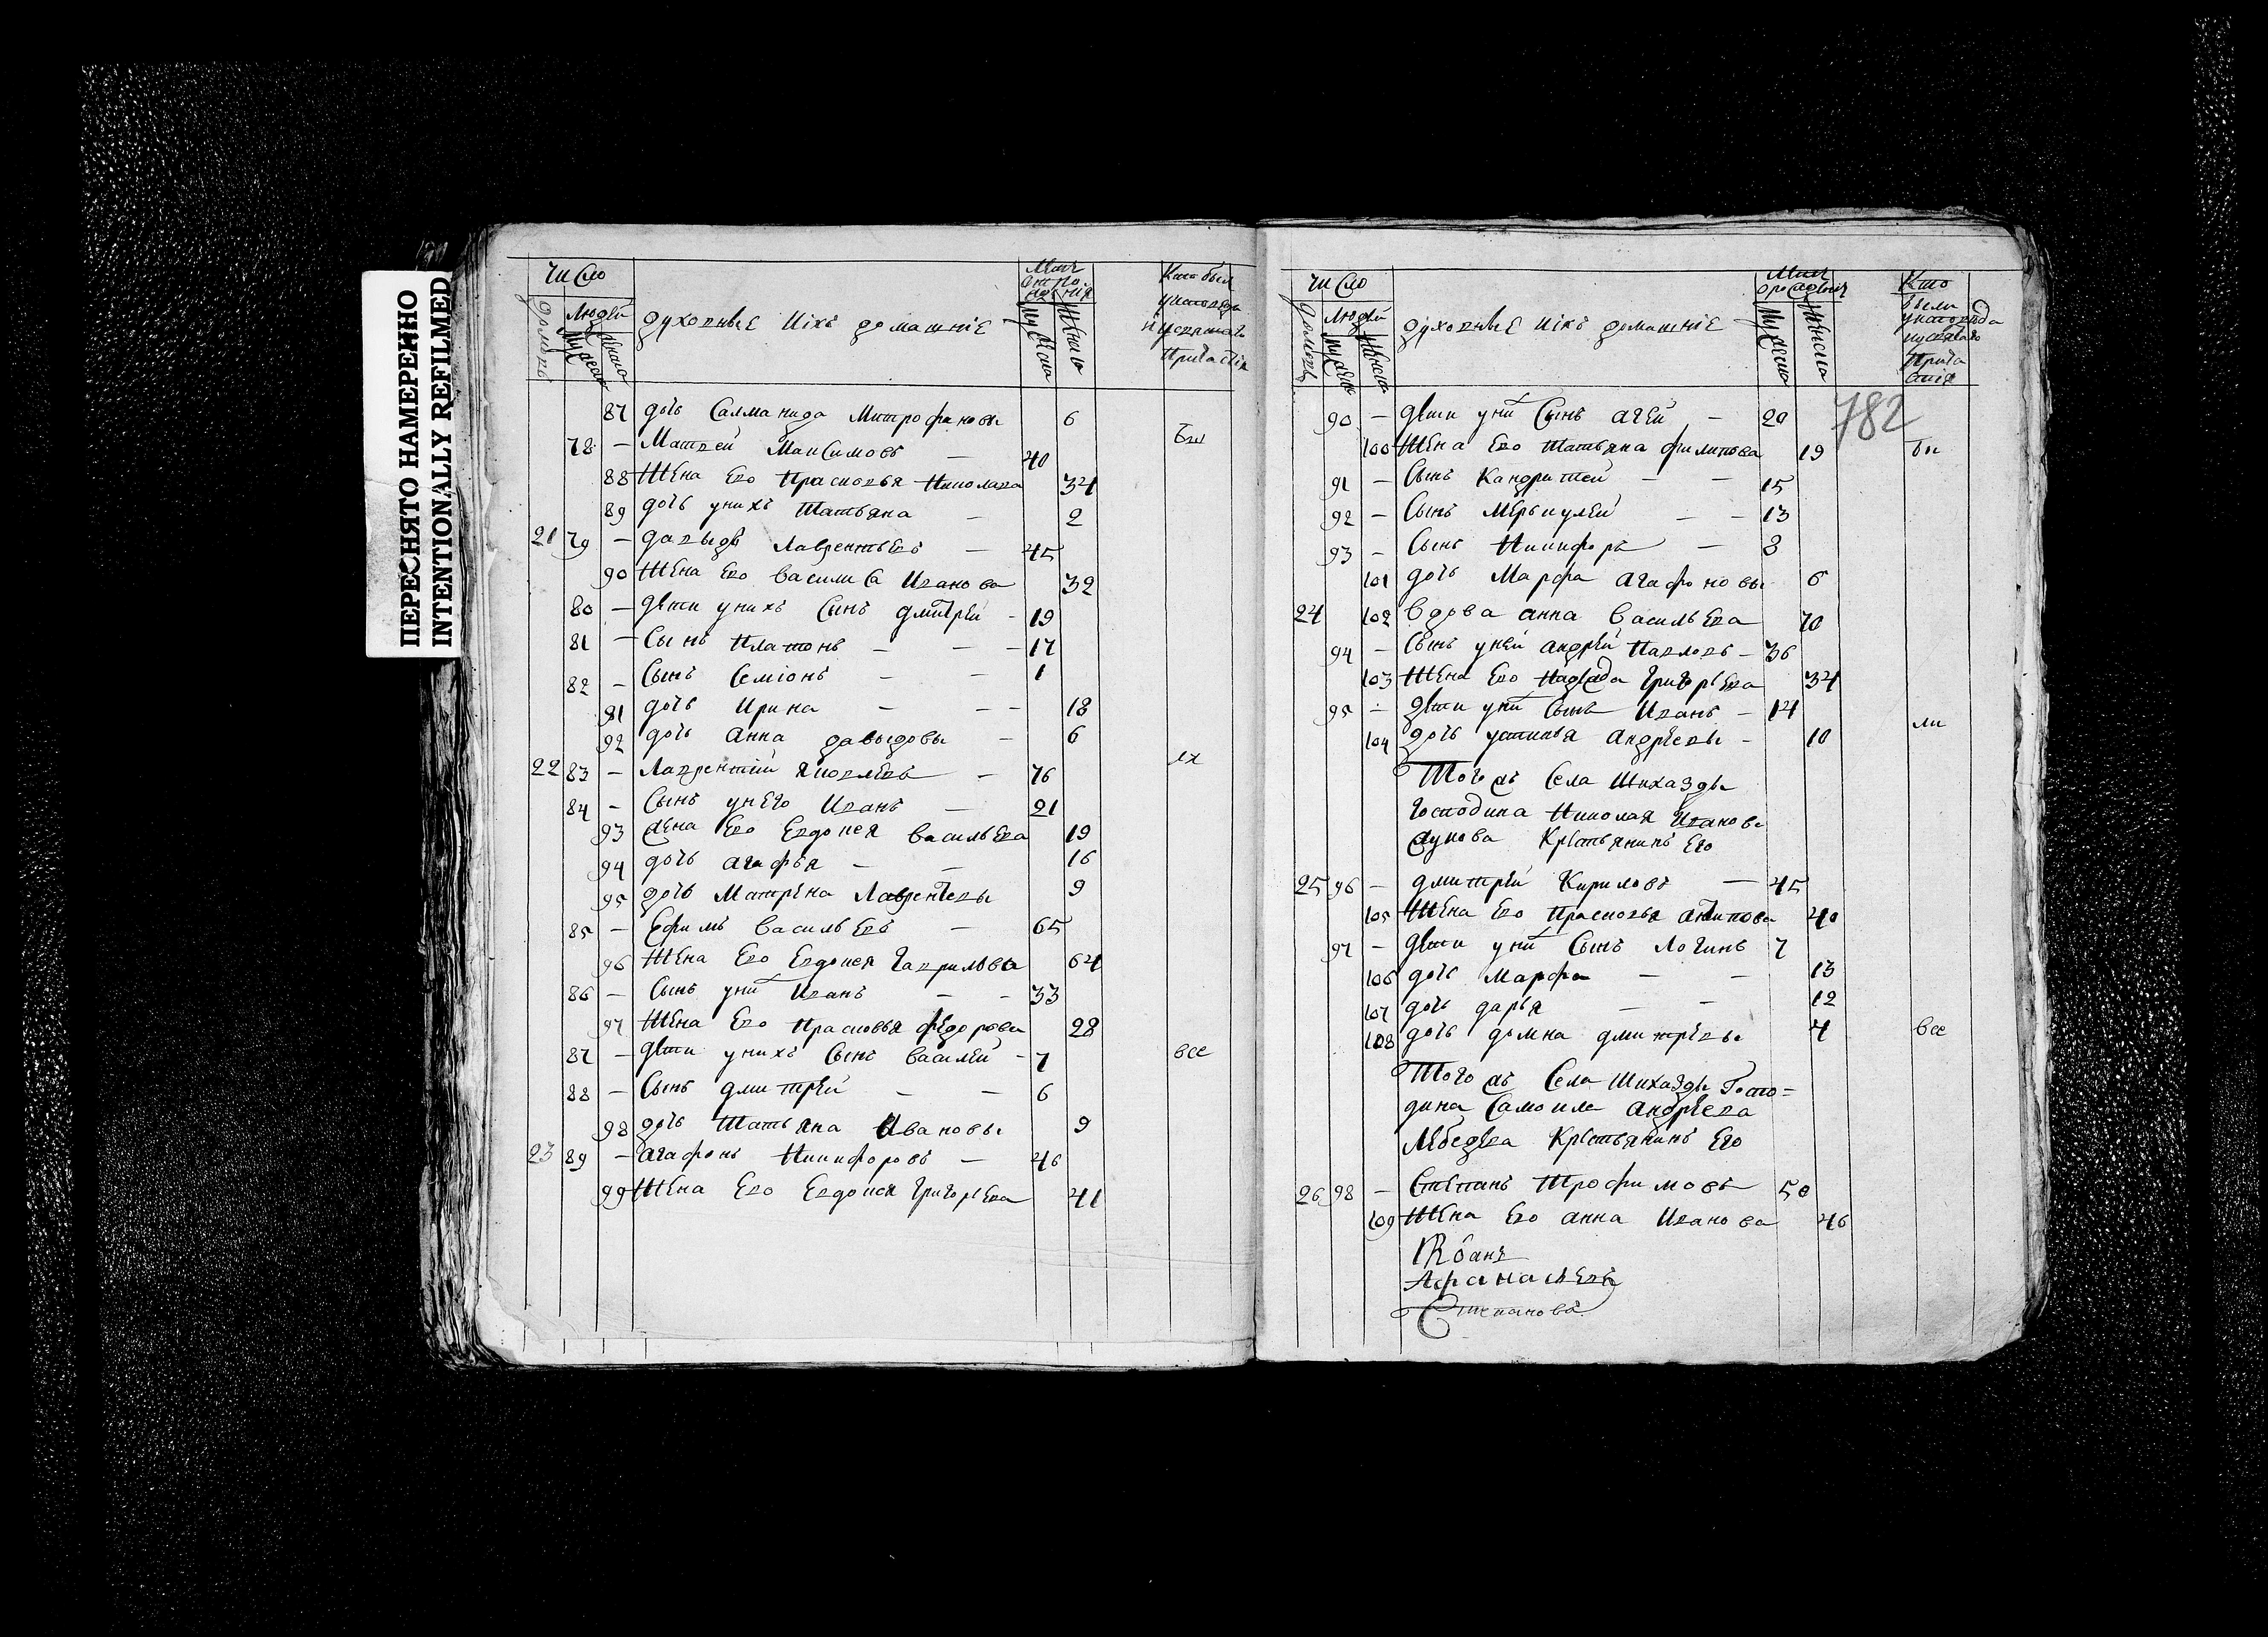 ПЕРЕСНЯТО НАМЕРЕННО
INTENTIONALLY REFILMED
Число
Людей
духовные ихъ домашніе
87 дочь Саламанида Митрофановы 6
78 — Матвей Максимовъ — 40
88 Жена Его Прасковья Николаева 34
89 дочь унихъ Татьяна — 2
21 79 — давыдъ Лаврентьевъ — 45
90 Жена Его Василиса Иванова 32
80 — дети унихъ Сынъ дмитрей - 19
81 — Сынъ Платонъ — — 17
82 — Сынъ Семіонъ — — 1
91 дочь Ирина — — 18
92 дочь Анна давыдовы — 6
22 83 — Лаврентій Яковлевъ — 76
84 — Сынъ унего Иванъ — 21
93 жена Его Евдокея Васильева 19
94 дочь агафья — — 16
95 дочь Матрена Лаврентевы 9
85 — Ефимъ Васильевъ — 65
96 Жена Его Евдокея Гаврилова 64
86 — Сынъ уних Иванъ — - 33
97 Жена Его Прасковья федорова 28
87 — дети унихъ Сынъ Василей - 7 все
88 — Сынъ дмитрей — — 6
98 дочь Татьяна Ивановы 9
23 89 — агафонъ Никифоровъ — 46
99 Жена Его Евдокея Григорьева 41
Число
Людей
духовные ихъ домашніе
Кто
были
782
90 — дети уних Сынъ агей — 20
100 Жена Его Татьяна филипова 19
91 — Сынъ Кандратей — — 15
92 — Сынъ Меркулей — — 13
93 — Сынъ Никифоръ — 8
101 дочь Марфа агафоновы 6
24 102 вдова анна Васильева 70
94 — Сынъ уней андрей Павловъ - 36
103 Жена Его Григорьева 34
95 — дети уних Сынъ Иванъ - 14
104 дочь устинья андреевы - 10
Того жъ Села Шихазды
Господина Николая Иванова
Крестьянинъ Его
25 96 — дмитрей Кириловъ — 45
105 Жена Его Прасковья антипова 40
97 — дети уних Сынъ Логинъ 7
106 дочь Марфа — — 13
107 дочь дарья — — 12
108 дочь домна дмитревы 4 все
Того жъ Села Шихазды Госпо=
дина Самоила андреева
Лебедева Крестьянинъ Его
26 98 — Степанъ Трофимовъ 50
109 Жена Его анна Иванова 46
Іоанъ
Афанасьевъ
Степановъ